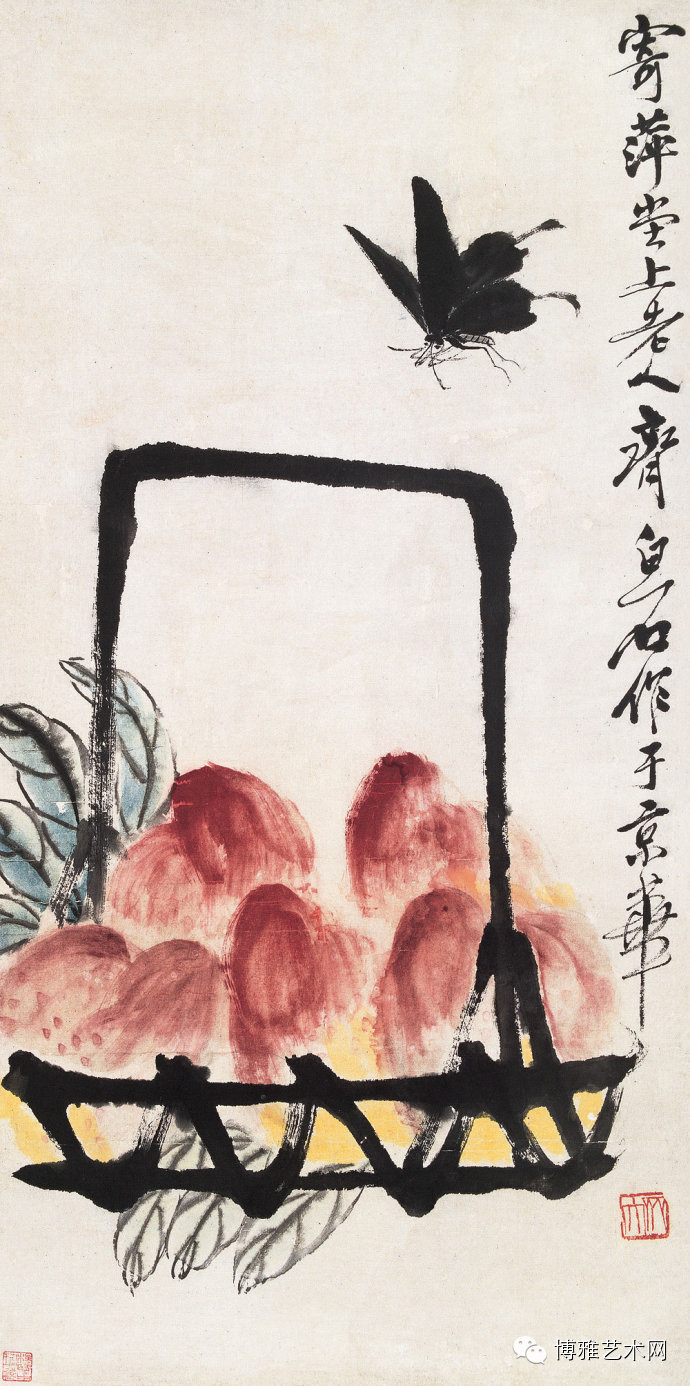 寄萍堂上老人齊白石作于京華
木人
博雅艺术网